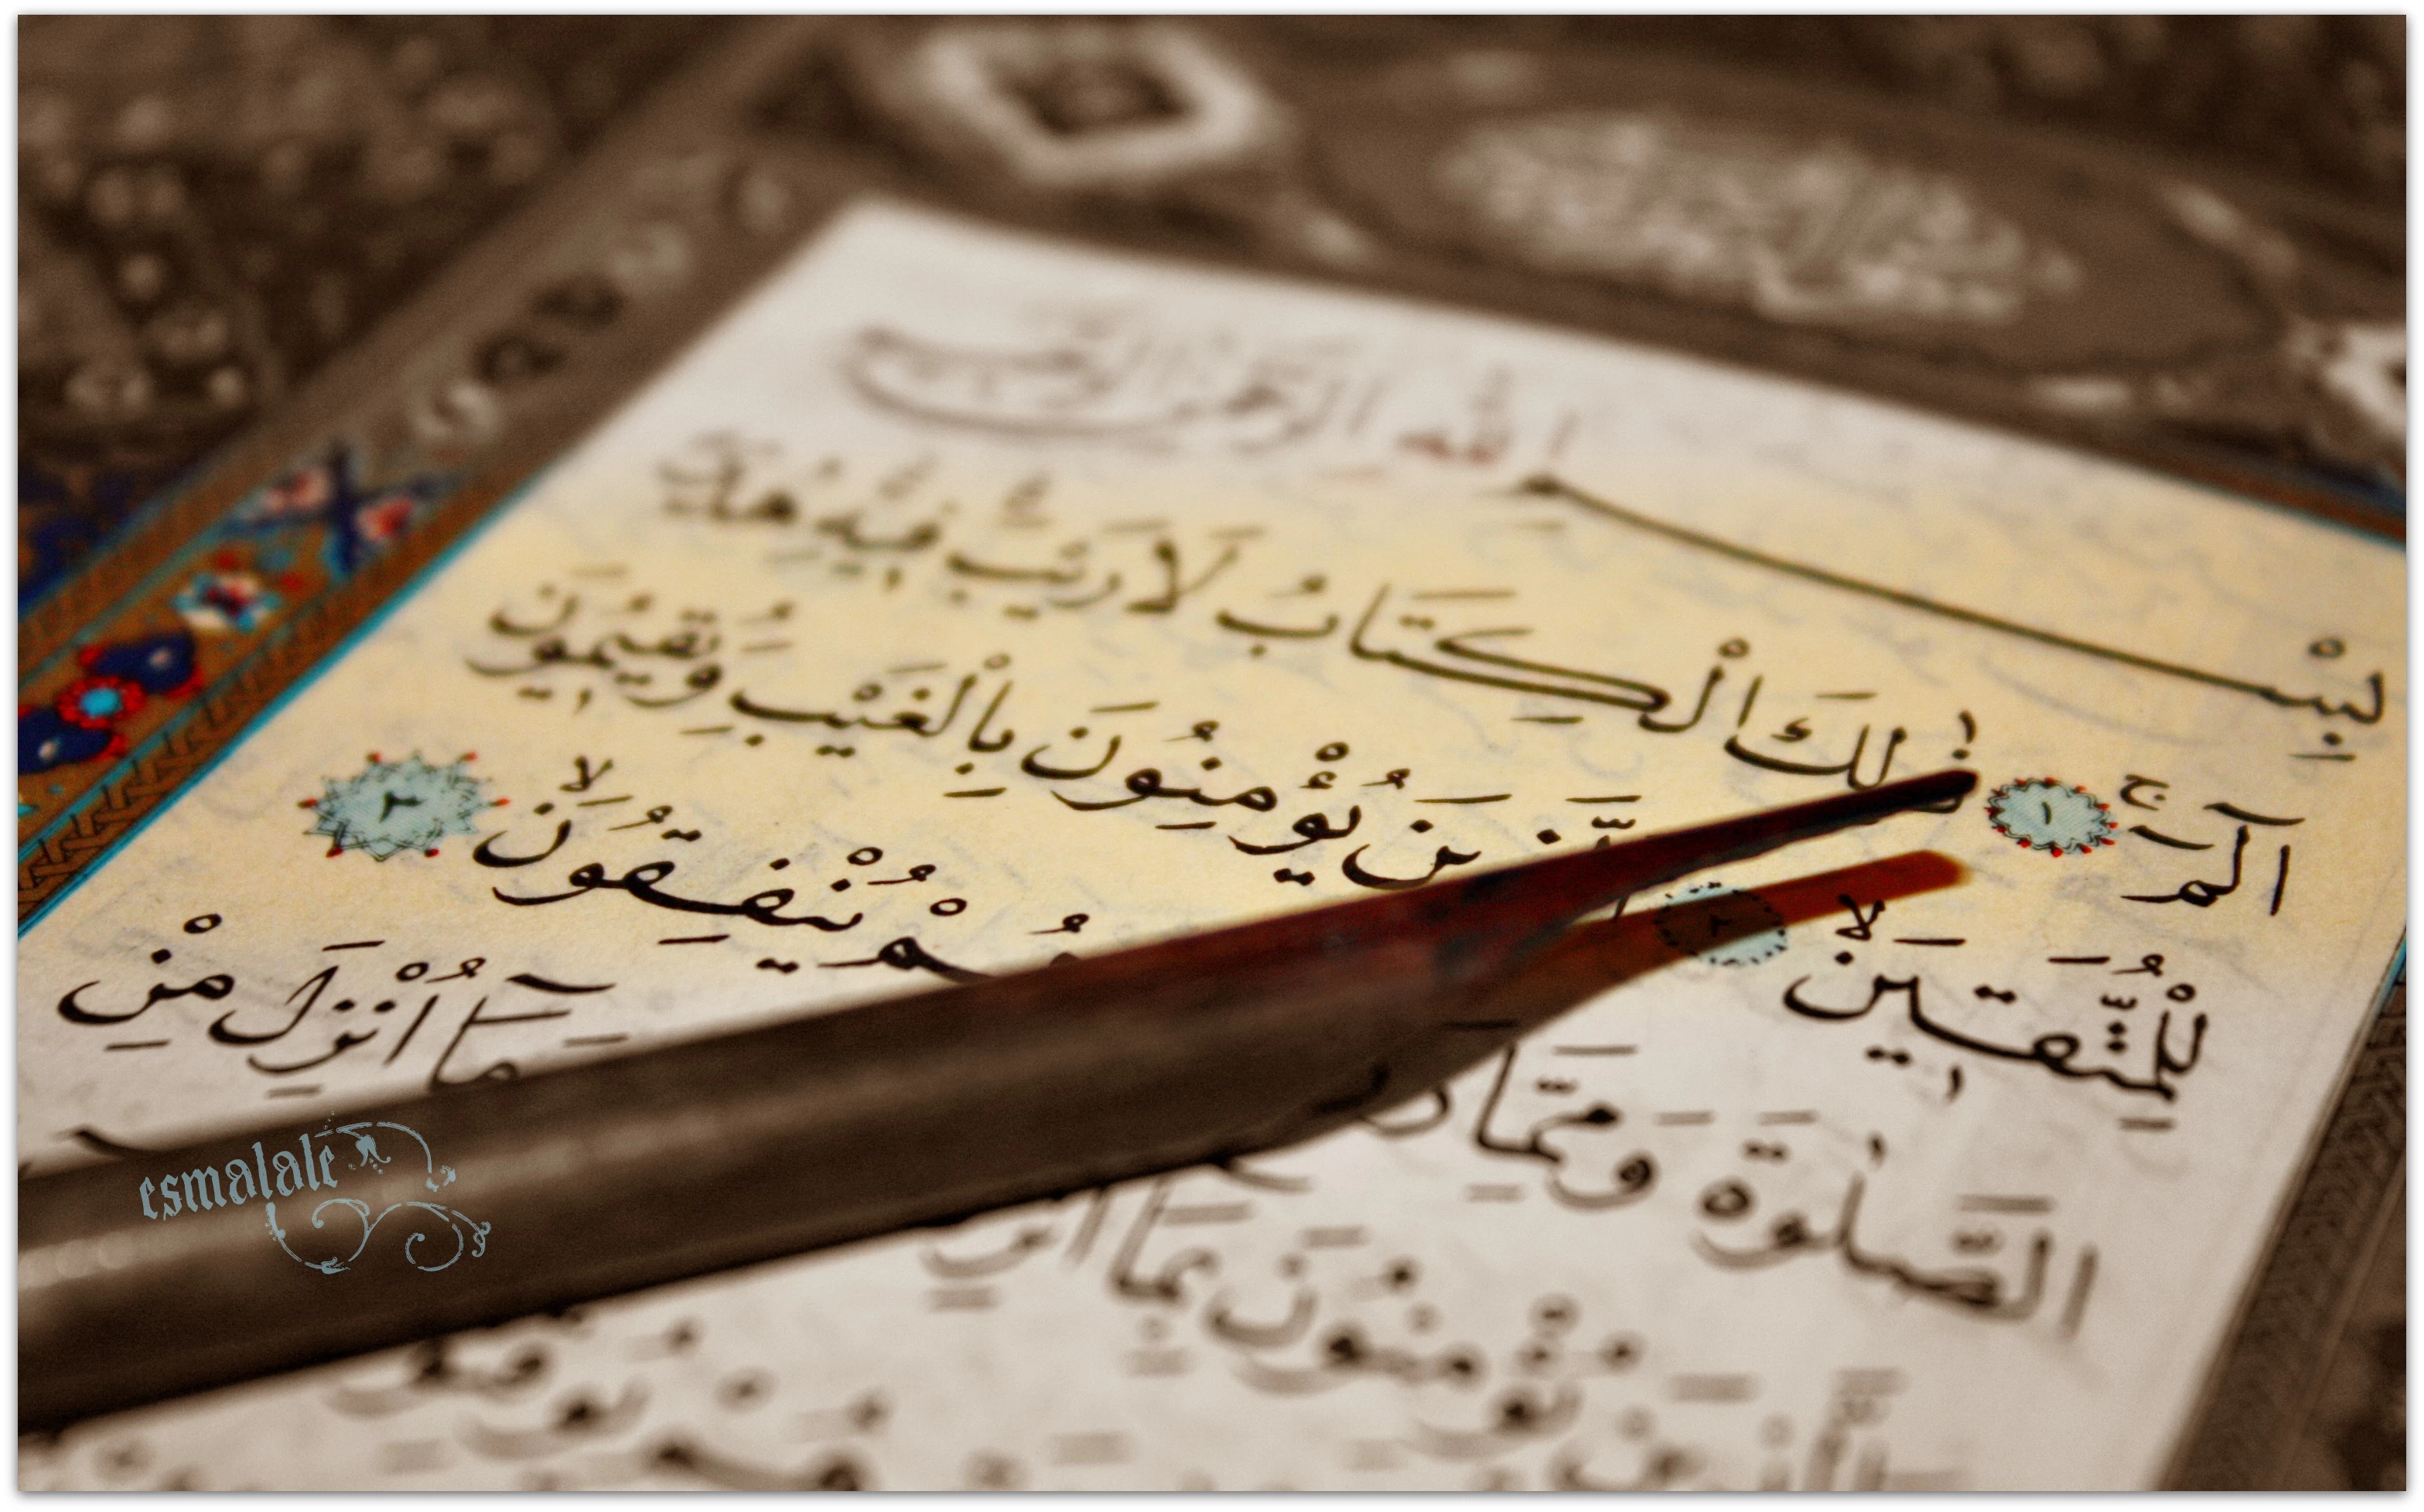 بِسْمِ اللّٰهِ الرَّحْمٰنِ الرَّحِيمِ
الٓمٓ ۚ ١ ذٰلِكَ الْكِتَابُ لَا رَيْبَ فِيهِ هُدًى
لِلْمُتَّقِينَ ۙ ٢ الَّذِينَ يُؤْمِنُونَ بِالْغَيْبِ وَيُقِيمُونَ
الصَّلٰوةَ وَمِمَّا يُنْفِقُونَ ۙ ٣
يُؤْمِنُونَ بِمَٓا مَٓا اُنْزِلَ مِنْ
esmalale